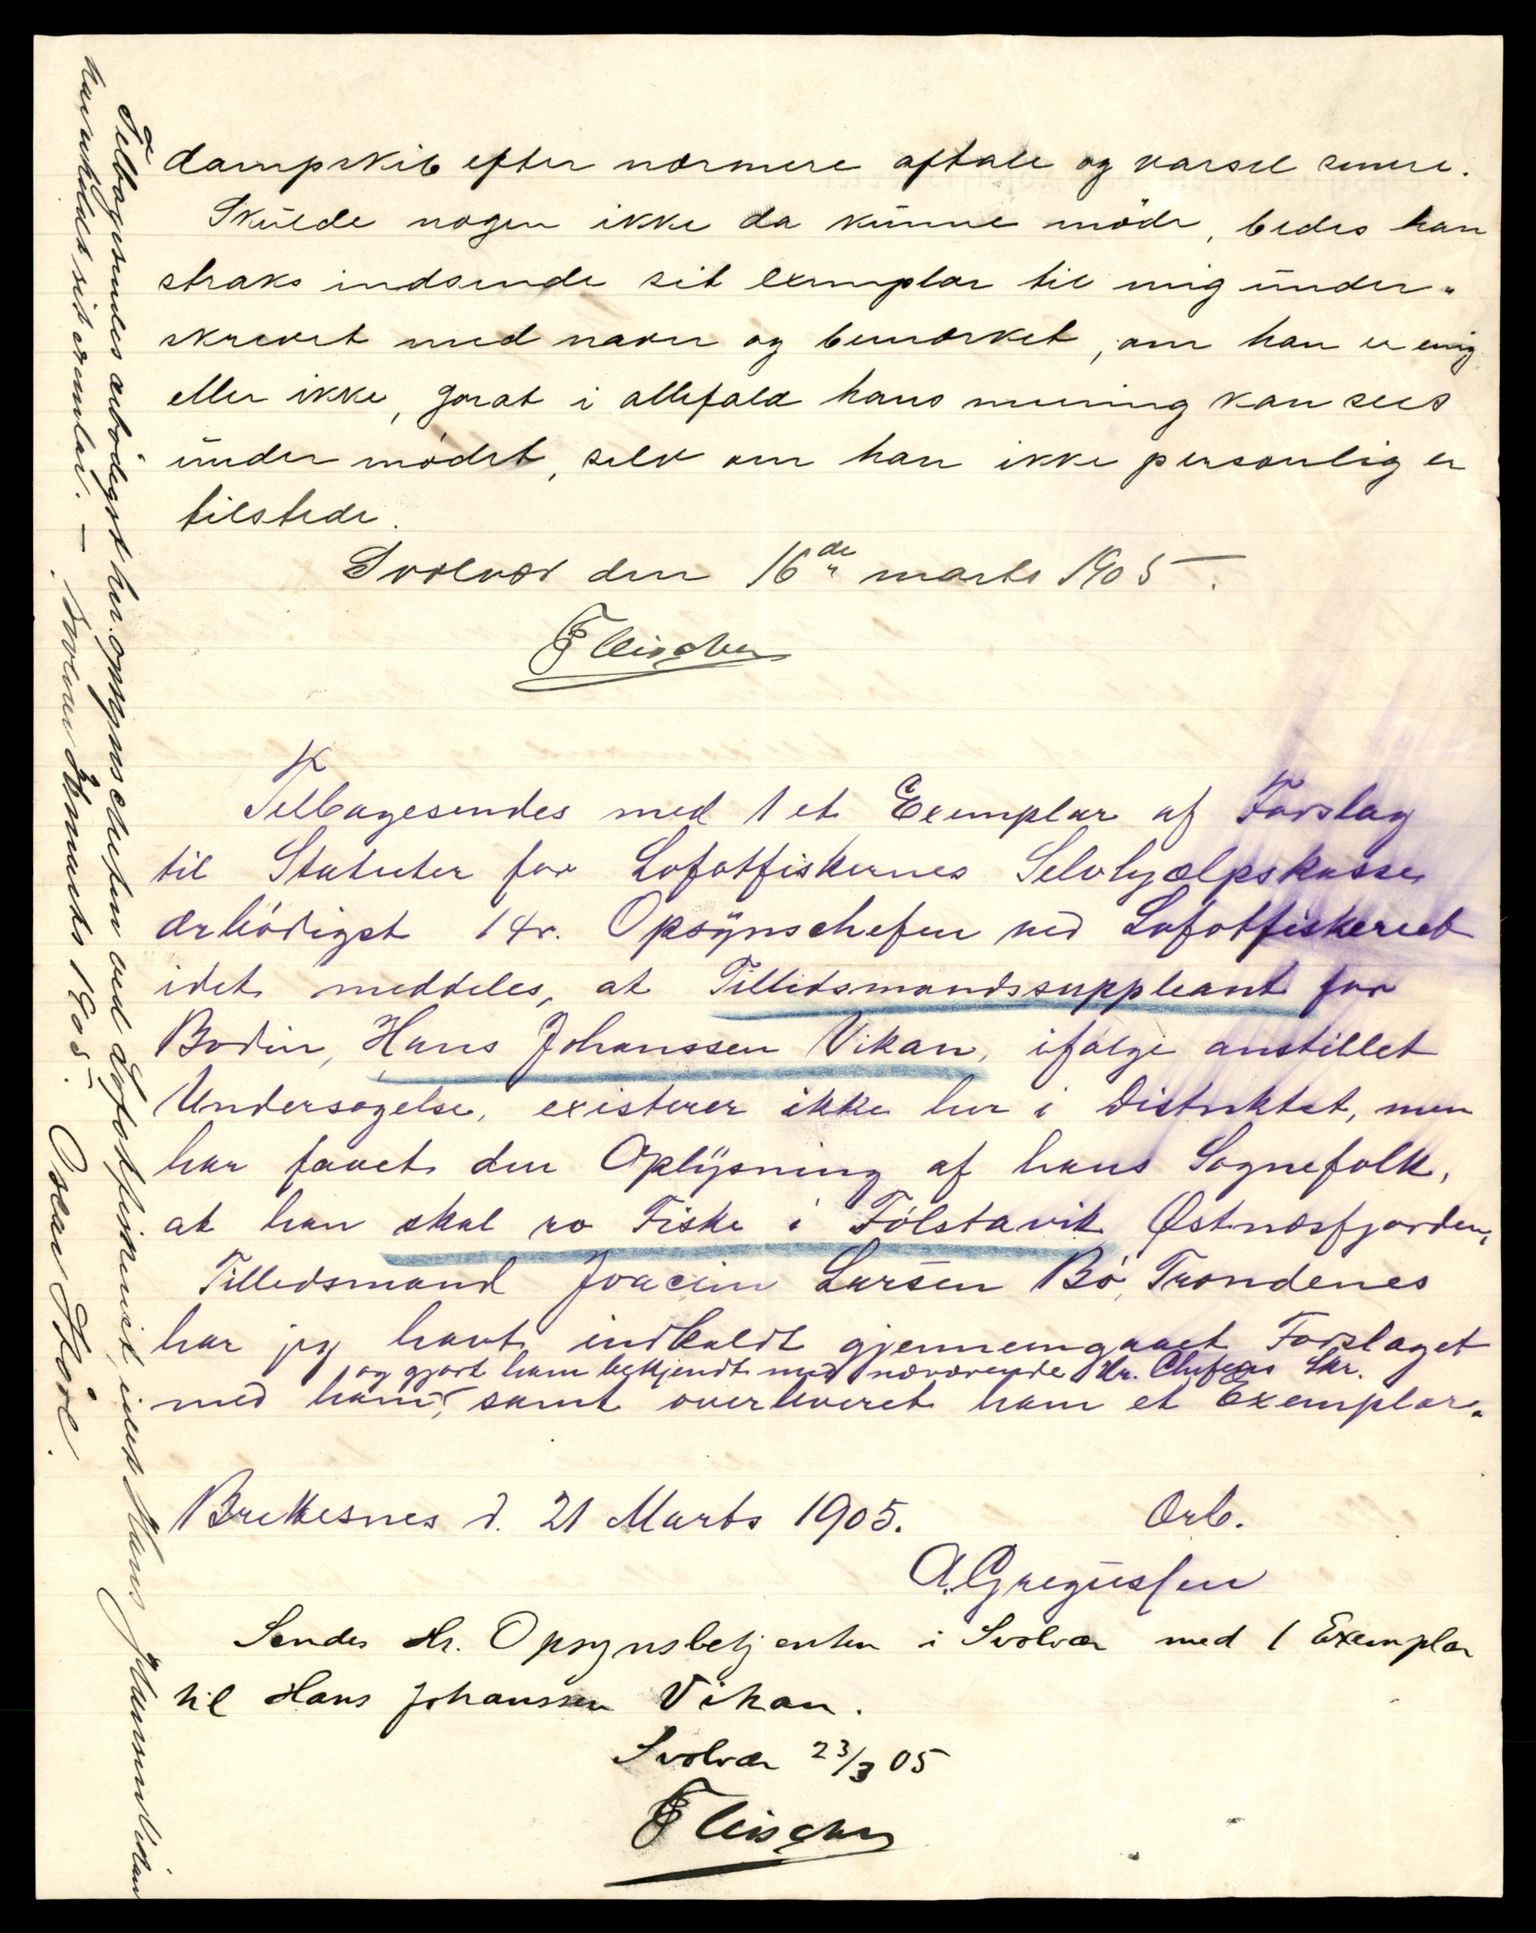 dampskib efter nærmere aftale og varsel senere.
Skulde nogen ikke da kunne møde, bedes han
straks indsende sit exemplar til mig under-
skrevet med navn og bemærket, om han er enig
eller ikke, forat i allefald hans mening kan sees
under mødet, selv om han ikke personlig er
tilstede.
Svolvær den 16de marts 1905.
Fleischer
Tilbagesendes med 1 et Exemplar af Forslag
til Statuter for Lofotfiskernes Selvhjælpskasse
ærbödigst Hr. Opsynschefen ved Lofotfiskeriet
idet meddeles, at Tillidsmandssuppleant for
Bodin, Hans Johanssen Vikan, ifølge anstillet
Undersøgelse, existerer ikke her i Distriktet, men
har faaet den Oplysning af hans Sognefolk,
at han skal ro Fiske i Fölstavik Østnæsfjorden,
Tillidsmand Joacim Larsen Bö, Trondenes
har jeg havt indkaldt gjennemgaaet Forslaget
og gjort ham bekjendt med nærværende Hr. Chefens Skr.
med ham, samt overleveret ham et Exemplar.
Brettesnes d. 21 Marts 1905.
Ærb.
A. Gregussen
Sendes Hr. Opsynsbetjenten i Svolvær med 1 Exemplar
til Hans Johanssen Vikan.
Svolvær 23/3 05
Fleischer
Tilbagesendes ærbödigst hr. opsynschefen ved Lofotfiskeriet, idet Hans Johansen Vikan
har tilstillet sit exemlar. —
Svolvær 28 marts 1905.
Oscar